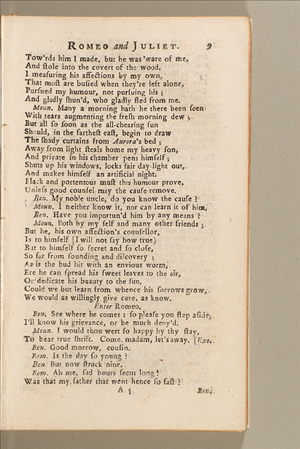 ROMEO and JULIET. 9
Tow'rds him I made, but he was 'ware of me,
And ſtole into the covert of the wood.
I meaſuring his affections by my own,
That moſt are buſied when they're left alone,
Purſued my humour, not purſuing his;
And gladly ſhun'd, who gladly fled from me.
Moun. Many a morning hath he there been ſeen
With tears augmenting the freſh morning dew;
But all ſo ſoon as the all-chearing ſun
Should, in the fartheſt eaſt, begin to draw
The ſhady curtains from Aurora's bed;
Away from light ſteals home my heavy ſon,
And private in his chamber pens himſelf;
Shuts up his windows, locks fair day-light out,
And makes himſelf an artificial night.
Black and portentous muſt this humour prove,
Unleſs good counſel may the cauſe remove.
Ben. My noble uncle, do you know the cauſe?
Moun. I neither know it, nor can learn it of him.
Ben. Have you importun'd him by any means?
Moun. Both by my ſelf and many other friends;
But he, his own affection's counſellor,
Is to himſelf (I will not ſay how true)
But to himſelf ſo ſecret and ſo cloſe,
So far from ſounding and diſcovery;
As is the bud bit with an envious worm,
Ere he can ſpread his ſweet leaves to the air,
Or dedicate his beauty to the ſun.
Could we but learn from whence his ſorrows grow,
We would as willingly give cure, as know.
Enter Romeo.
Ben. See where he comes: ſo pleaſe you ſtep aſide,
I'll know his grievance, or be much deny'd.
Moun. I would thou wert ſo happy by thy ſtay,
To hear true ſhrift. Come, madam, let's away. [Exe.
Ben. Good morrow, couſin.
Rom. Is the day ſo young?
Ben. But now ſtruck nine.
Rom. Ah me, ſad hours ſeem long!
Was that my father that went hence ſo faſt?
A 5 Ben.